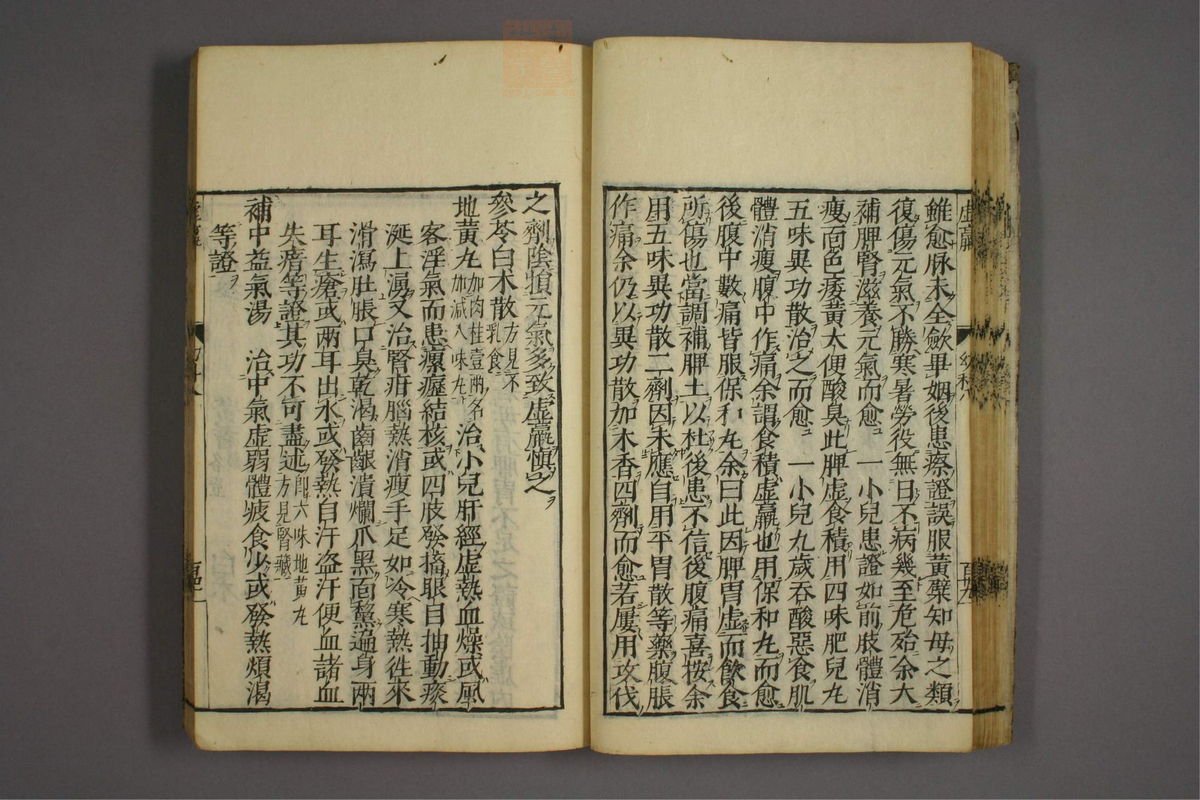 雖愈脉未全斂畢姻後患瘵證誤服黃蘗知母之類
復傷元氣不勝寒暑勞役無日不病幾至危殆余大
補脾腎滋養元氣而愈 一小兒患證如前肢體消
瘦面色痿黃大便酸臭此脾虛食積用四味肥兒丸
五味異功散治之而愈 一小兒九歲吞酸惡食肌
體消瘦腹中作痛余謂食積虛羸也用保和丸而愈
後腹中數痛皆服保和丸余曰此因脾胃虛而飲食
所傷也當調補脾土以杜後患不信後腹痛喜按余
用五味異功散二劑因未應自用平胃散等藥腹脹
作痛余仍以異功散加木香四劑而愈若屢用攻伐
之劑隂損元氣多致虛羸慎之
參苓白术散方見不乳食
地黃丸加肉桂壹兩名加減八味丸 治小兒肝經虛熱血燥或風
客淫氣而患瘰癧結核或四肢發搐眼目抽動痰
涎上湧又治腎疳腦熱消瘦手足如冷寒熱徃來
滑瀉肚脹口臭乾渴齒齦潰爛爪黑面黧遍身兩
耳生瘡或兩耳出水或發熱自汗盗汗便血諸血
失瘖等證其功不可盡述即六味地黃丸方見腎臟
補中益氣湯 治中氣虛弱體疲食少或發熱煩渴
等證